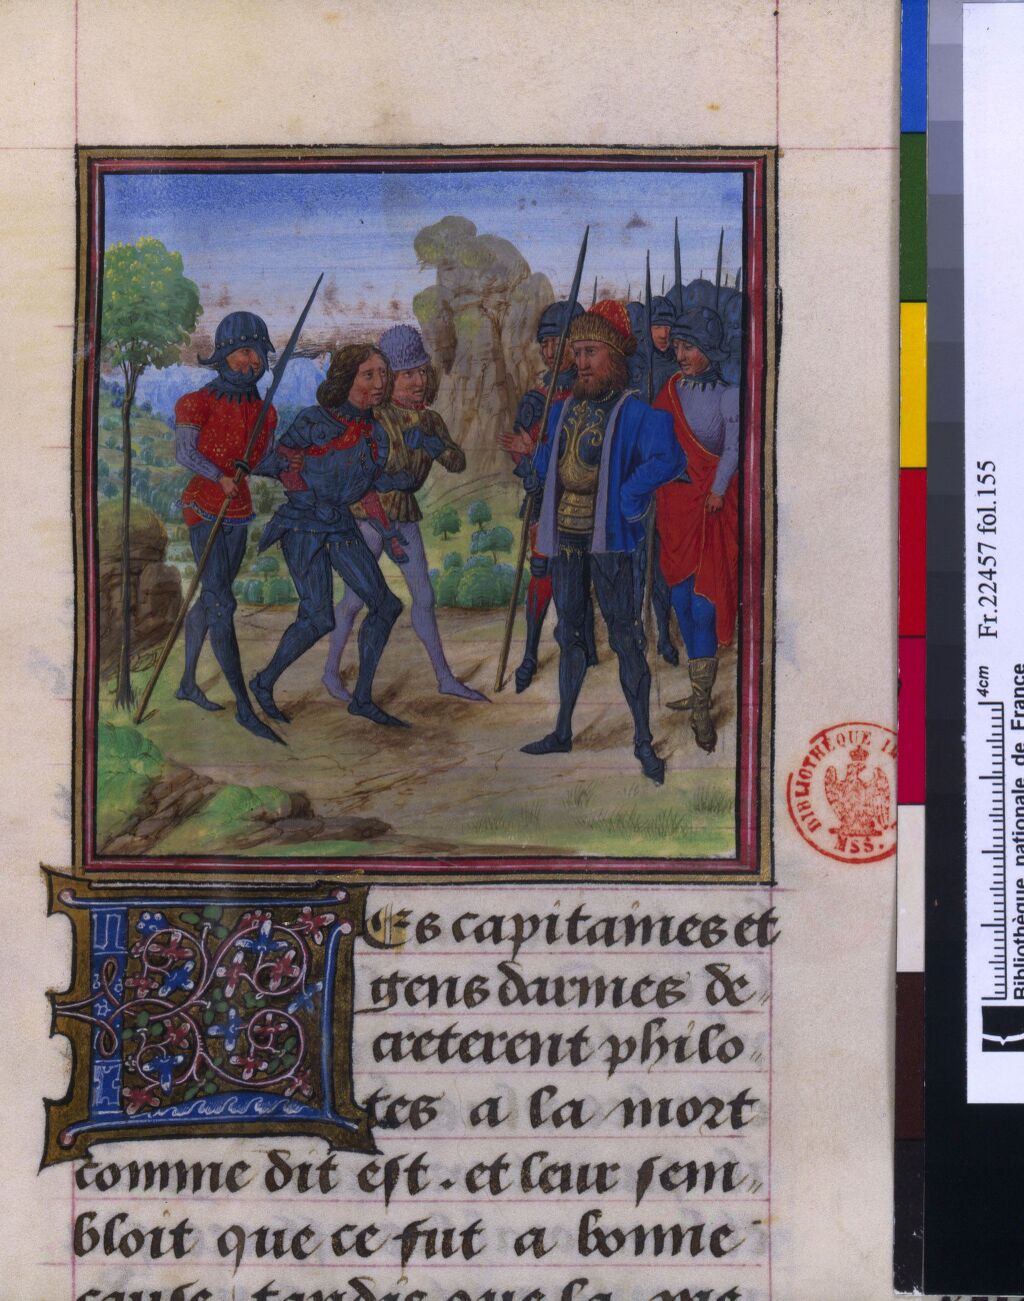 Es capitaines et
gens darmes de„
creterent philo„
tes a la mort
comme dit est . et leur sem„
bloit que ce fut a bonne
cause tandis que la me
BIBLIOTHEQUE
MSS.
Fr.22457 fol.155
4cm
Bibliothèque nationale de France